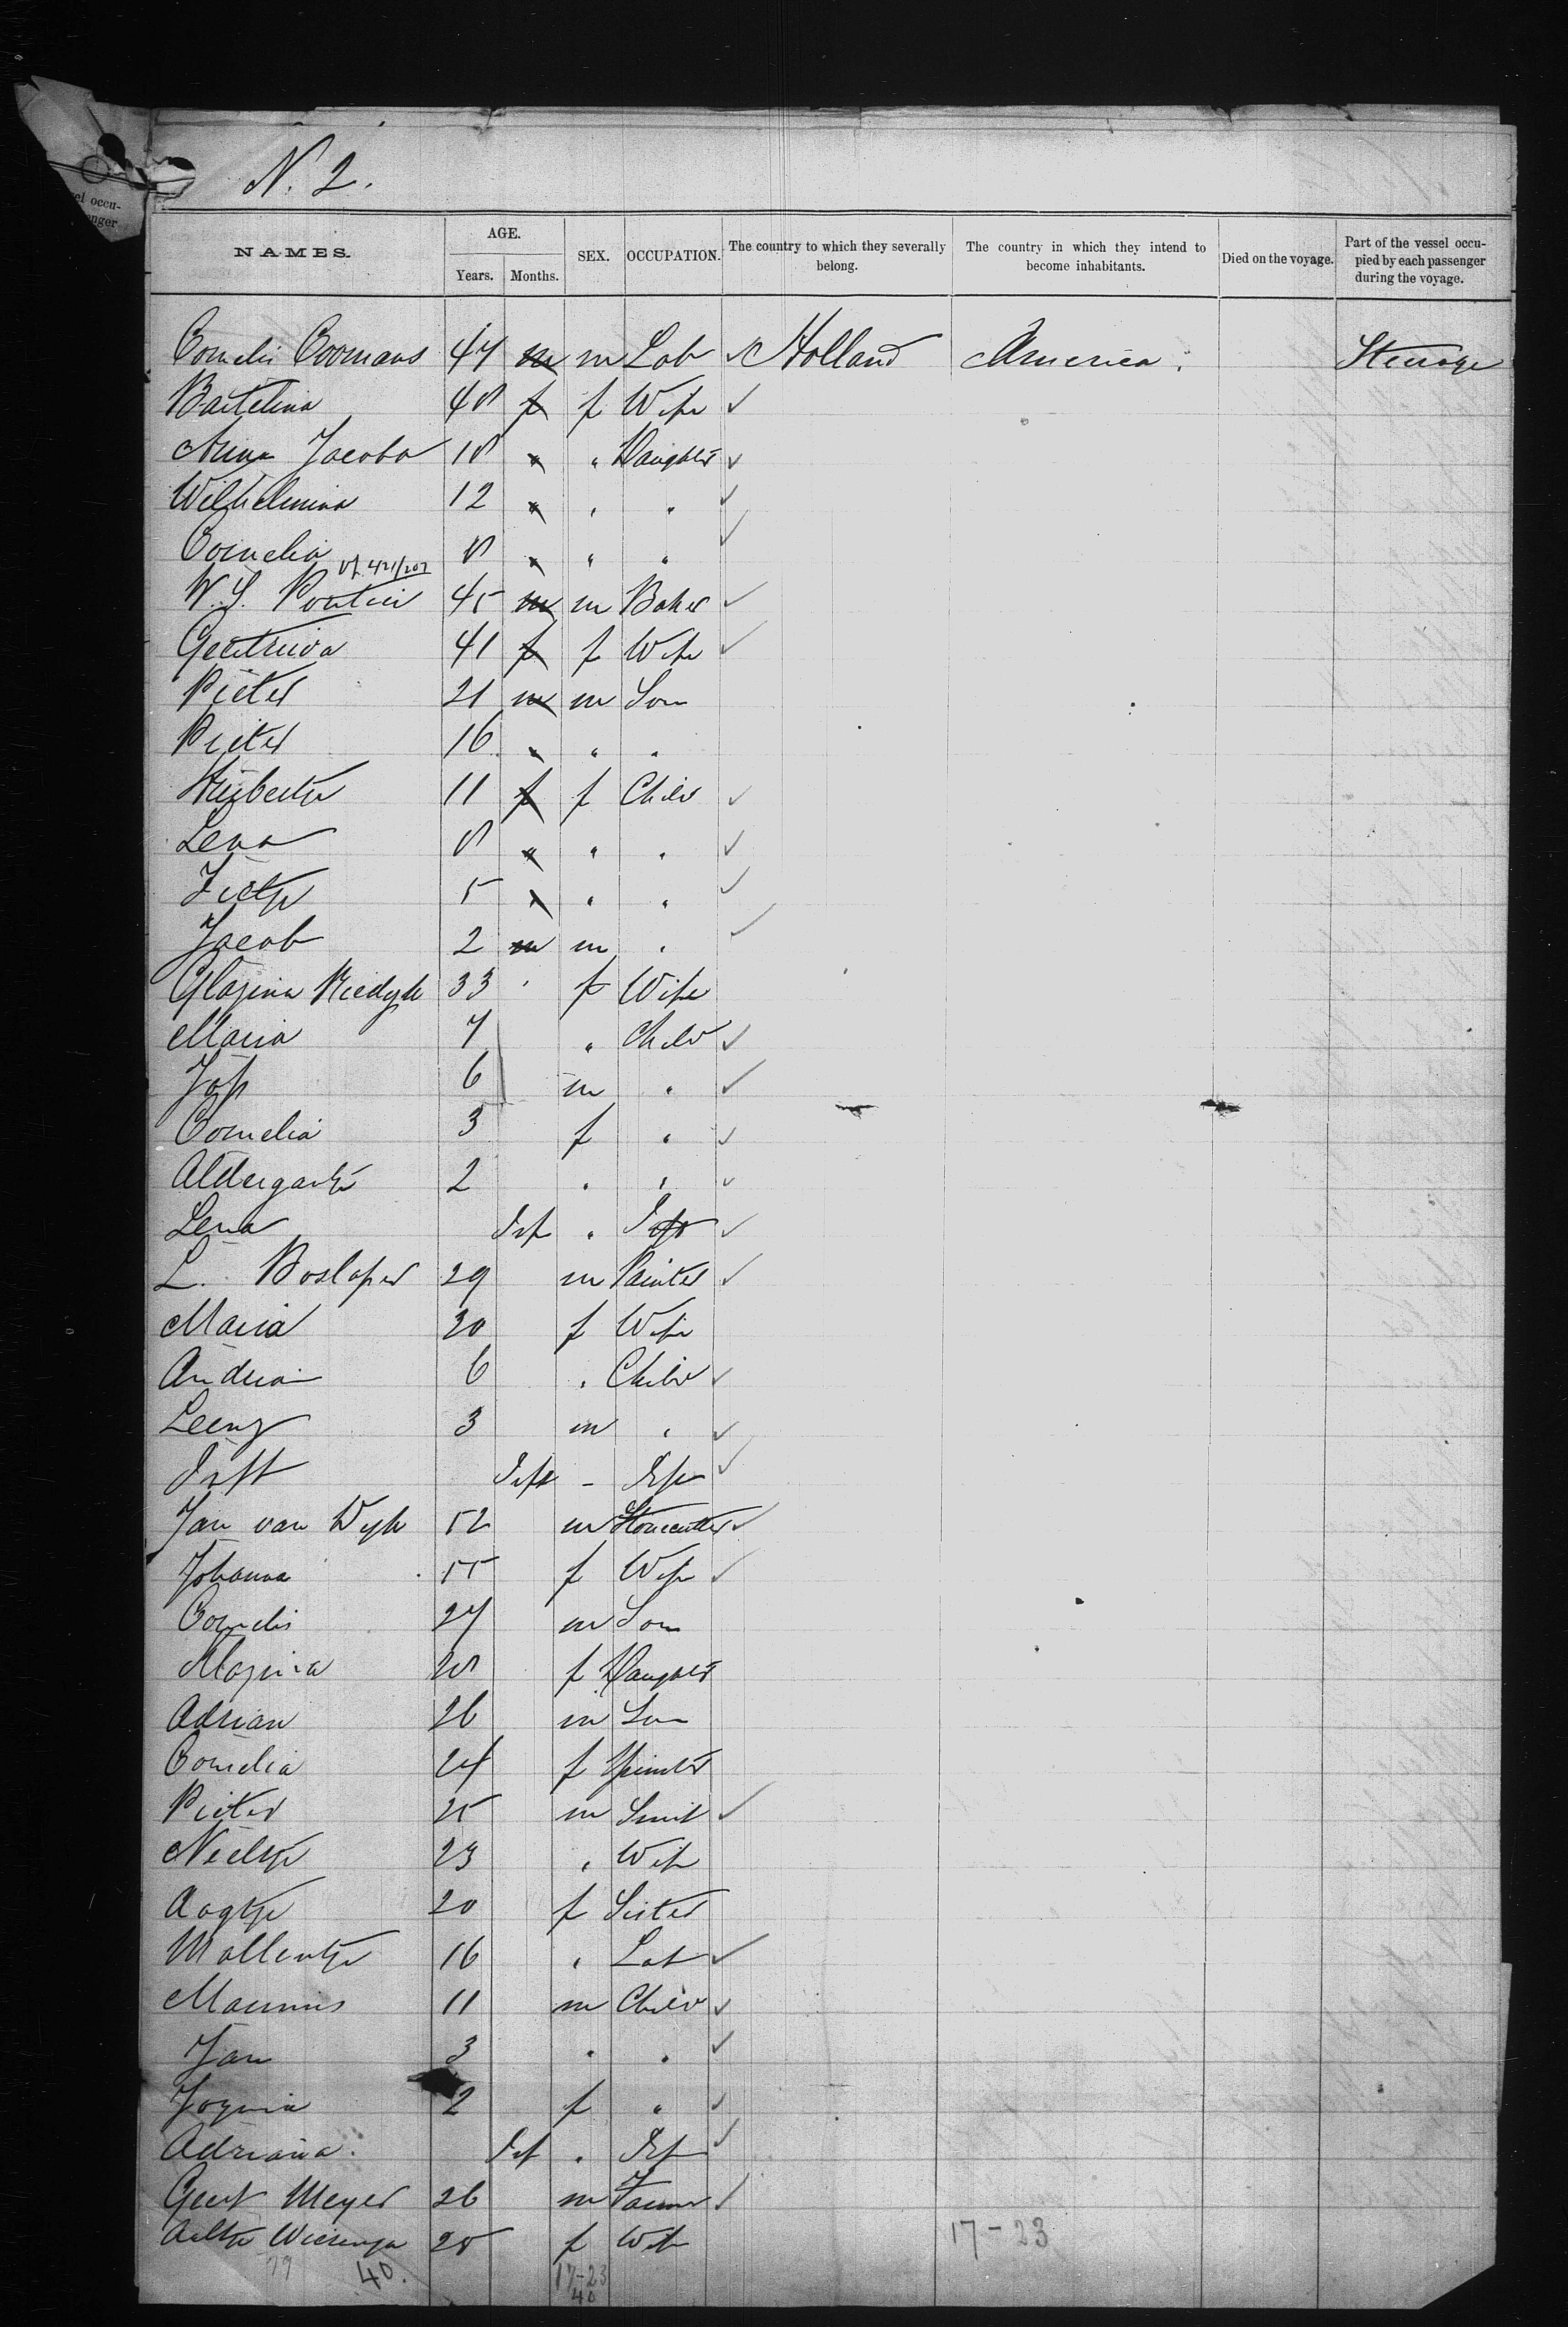 N. 2.
NAMES. AGE. SEX. OCCUPATION. The country to which they severally belong. The country in which they intend to become inhabitants. Died on the voyage. Part of the vessel occupied by each passenger during the voyage.
Years. Months.
el occu-
enger
Cornelis Coomans 47 m m Lab ✓ Holland America. Steerage
Bartelina 48 f f Wife ✓
Anna Jacoba 18 " " Daughter ✓
Wilhelmina 12 " " " ✓
Cornelia 8 " " " ✓
W. S. Pontier 45 m m Baker ✓
Geertruida 41 f f Wife ✓
Pieter 21 m m Son
Pieter 16 " " "
Huibertje 11 f f Child ✓
Lena 8 " " " ✓
Fietje 5 " " " ✓
Jacob 2 m m " ✓
Glazina Riedyk 33 f Wife
Maria 7 " Child ✓
Jop 6 m " ✓
Cornelia 3 f " ✓
Aldergantje 2 " " ✓
Lena Inf " Inf ✓
L. Boslaper 29 m Painter ✓
Maria 30 f Wife
Andria 6 " Child ✓
Leeny 3 m " ✓
Inft Inft - Inf ✓
Jan van Wyk 52 m Stonecutter ✓
Johanna 55 f Wife ✓
Cornelis 27 m Son
Klazina 28 f Daughter
Adrian 26 m Son
Cornelia 24 f Spinster
Pieter 25 m Smit ✓
Neeltje 23 " Wife
Aagtje 20 f Sister
Mallentje 16 " Lab ✓
Marinus 11 m Child ✓
Jan 3 " " ✓
Jozina 2 f " ✓
Adriana. Inf " Inf ✓
Geert Meyer 26 m Farmer ✓
Aaltje Wiersenga 25 f Wife
17-23
40.
17-23
40